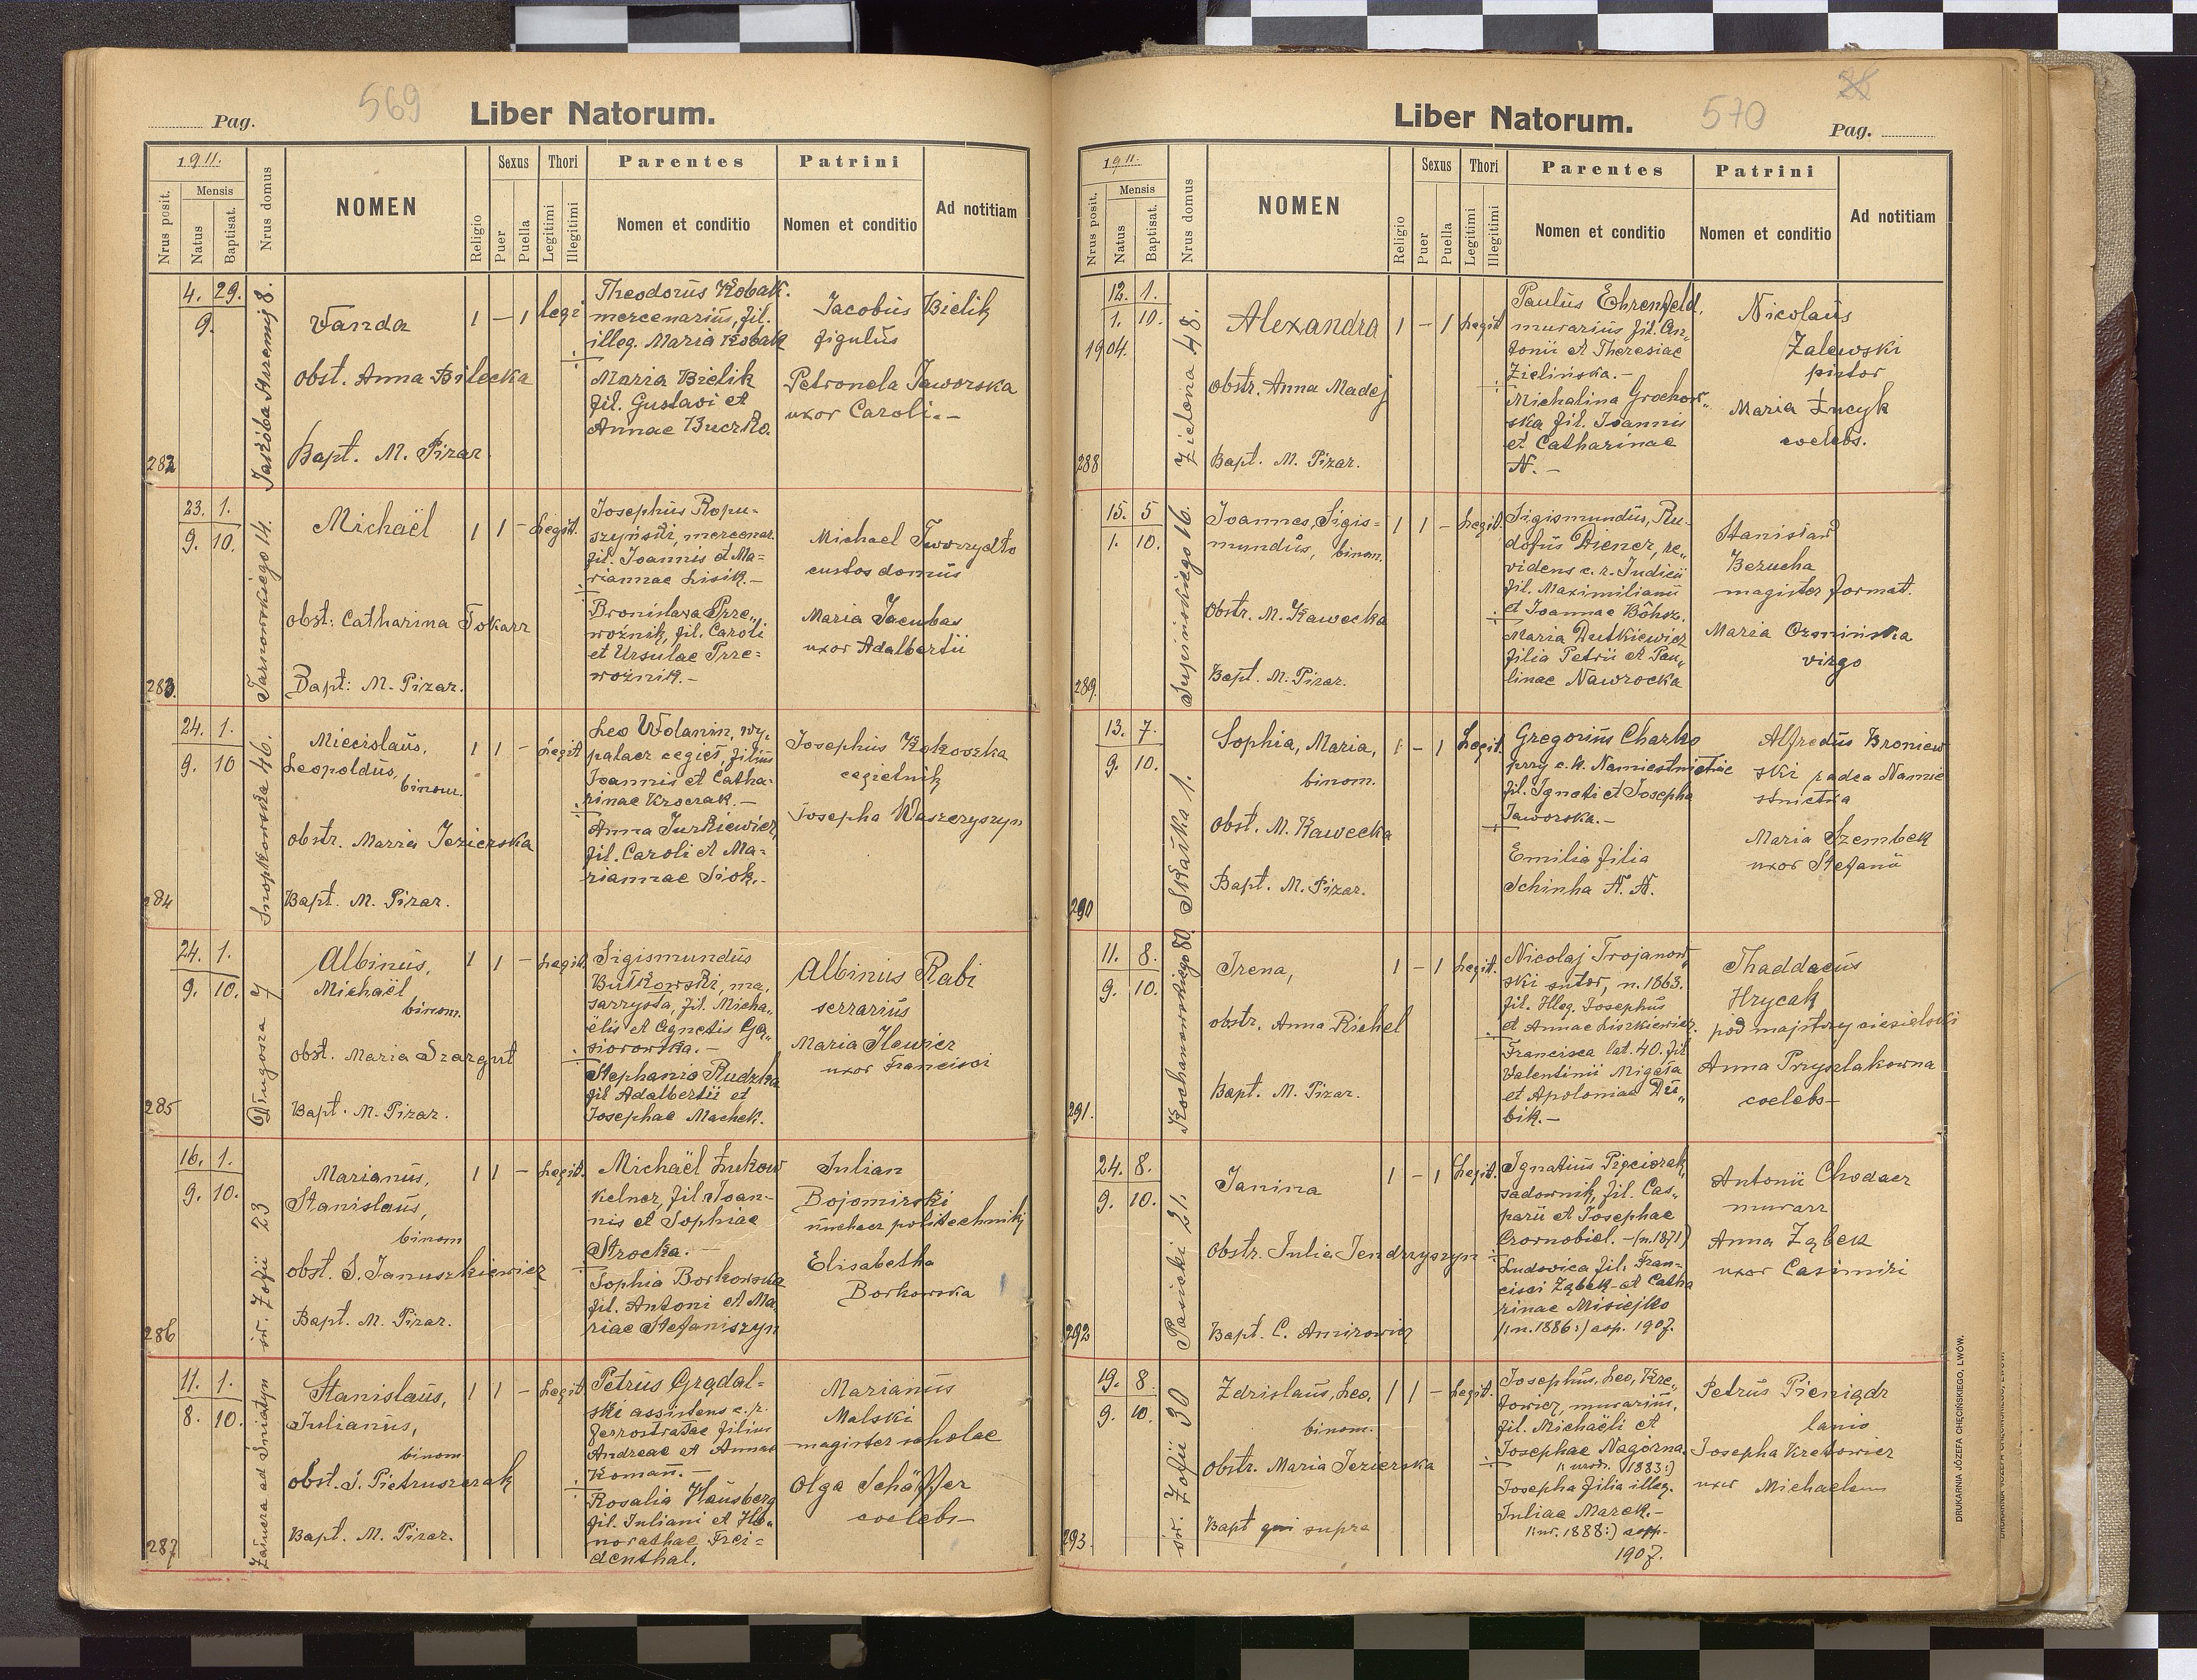 569
Liber Natorum.
Pag.
1911.
Nrus posit.
Mensis
Natus
Baptisat.
Nrus domus
NOMEN
Religio
Sexus
Puer
Puella
Thori
Legitimi
Illegitimi
Parentes
Nomen et conditio
Patrini
Nomen et conditio
Ad notitiam
282
4. 29.
9.
Jakóba Strzemię 8.
Vanda
obst. Anna Bilecka
Bapt. M. Pizar.
1 – 1 legi
Theodorus Kobak.
mercenarius, fil.
illeg. Maria Kobak
Maria Bielik
fil. Gustavi et
Annae Buczko.
Jacobus Bielik
figulus
Petronela Jaworska
uxor Caroli.-
283.
23. 1.
9. 10.
Tarnowskiego 14.
Michaël
obst: Catharina Tokarz
Bapt: M. Pizar.
1 1 – Legit.
Josephus Ropu-
szyński, mercenar.
fil. Joannis et Ma-
riannae Lisik.-
Bronislava Prze-
woźnik, fil. Caroli
et Ursulae Prze-
woźnik.-
Michael Tworzydło
custos domus
Maria Jacubas
uxor Adalbertii
284
24. 1.
9. 10
Snopkowska 46.
Miecislaus,
Leopoldus,
binom.
obstr. Maria Jezierska
Bapt. M. Pizar.
1 1 – Legit
Leo Wolanin, wy-
palacz cegieł, filius
Joannis et Catha-
rinae Kroczak.-
Anna Jurkiewicz,
fil. Caroli et Ma-
riannae Siok.-
Josephus Kokoszka
cegielnik
Josepha Waszczyszyn
285
24. 1.
9. 10.
Długosza 7
Albinus,
Michaël
binom.
obst. Maria Szargut
Bapt. M. Pizar.
1 1 – Legit.
Sigismundus
Butkowski, ma-
sarzysta, fil. Micha-
ëlis et Agnetis Gą-
siorowska.-
Stephania Rudzka
fil Adalbertii et
Josephae Machek.
Albinius Rabi
serrarius
Maria Ilewicz
uxor Francisci
286
16. 1.
9. 10.
św. Zofii 23
Marianus,
Stanislaus,
binom
obst. S. Januszkiewicz
Bapt. M. Pizar.
1 1 – Legit.
Michaël Żukow
kelner, fil. Joan-
nis et Sophiae
Strocka.-
Sophia Borkowska
fil. Antoni et Ma-
riae Stefaniszyn
Julian
Bojomirski
słuchacz politechniki
Elisabetha
Borkowska
287
11. 1.
8. 10.
ad Śniatyn
Stanislaus,
Julianus,
binom
obst. S. Pietruszczak
Bapt. M. Pizar.
1 1 – Legit
Petrus Grądal-
ski assistens c.r.
ferrostratae filius
Andreae et Annae
Koman.-
Rosalia Hausberg
fil. Juliani et Ho-
norathae Frei-
denthal.
Marianus
Malski
magister scholae
Olga Schäffer
coelebs-
570
Liber Natorum.
Pag.
1911.
Nrus posit.
Mensis
Natus
Baptisat.
Nrus domus
NOMEN
Religio
Sexus
Puer
Puella
Thori
Legitimi
Illegitimi
Parentes
Nomen et conditio
Patrini
Nomen et conditio
Ad notitiam
288
12. 1.
1. 10.
1904.
Zielona 48.
Alexandra
obstr. Anna Madej
Bapt. M. Pizar.
1 – 1 Legit
Paulus Ehrenfeld.
murarius fil. An-
tonii et Theresiae
Zielińska.-
Michalina Grochow-
ska fil. Joannis
et Catharinae
N.-
Nicolaus
Zalewski
pistor
Maria Łucyk
coelebs.
289.
15. 5
1. 10.
Supińskiego 16.
Joannes, Sigis-
mundus, binom.
Obstr. M. Kawecka
Bapt. M. Pizar.
1 1 – Legit.
Sigismundus, Ru-
dofus Diener, re-
videns c.r. Judicii
fil. Maximiliani
et Joannae Böhsz.
Maria Dutkiewicz
filia Petri et Pau-
linae Nawrocka
Stanislaw
Bezucha
magister format.
Maria Ozmińska
virgo
290
13. 7.
9. 10.
Skałka 1.
Sophia, Maria,
binom.
Obst. M. Kawecka
Bapt. M. Pizar.
1 – 1 Legit.
Gregorius Charko
przy c.k. Namiestnictwie
fil. Ignati et Josepha
Jaworska.-
Emilia filia
Schinha N. N.
Alfredus Broniew
ski radca Namie
stnictwa
Maria Szembek
uxor Stefani
291.
11. 8.
9. 10.
Kochanowskiego 80.
Irena,
obstr. Anna Richel
Bapt. M. Pizar.
1 – 1 Legit.
Nicolaj Trojanow-
ski sutor, n. 1863.
fil. Illeg. Josephus
et Annae Liszkiewicz.
Francisca lat. 40. fil
Valentinii Migała
et Apoloniae Du-
bik.-
Thaddaeus
Hrycak
pod majstry ciesielski
Anna Przyszlakowna
coelebs-
292
24. 8.
9. 10.
Pasieki 21.
Janina
Obstr. Julia Jendrzyszyn
Bapt. C. Amirowicz
1 – 1 Legit.
Ignatius Pięciorak,
sadownik, fil. Cas-
parii et Josephae
Czornobiel.-(n. 1871)
Ludovica fil. Fran-
cisci Ząbek et Catha
rinae Misiejko
/:n. 1886:/ cop. 1907.
Antonii Chodacz
murarz
Anna Ząbek
uxor Casimiri
293.
19. 8.
9. 10.
św. Zofii 30
Zdzislaus, Leo,
binom.
Obstr. Maria Jezierska
Bapt qui supra
1 1 – Legit.
Josephus, Leo, Kre-
towicz, murarius,
fil. Michaëli et
Josephae Nagórna.
/: urodz. 1883:/
Josepha filia illeg.
Juliae Marek.-
/:ur. 1888:/ cop.
1907.
Petrus Pieniądz
lanio
Josepha Kretowicz
uxor Michaelem
DRUKARNIA JÓZEFA CHĘCIŃSKIEGO, LWÓW.